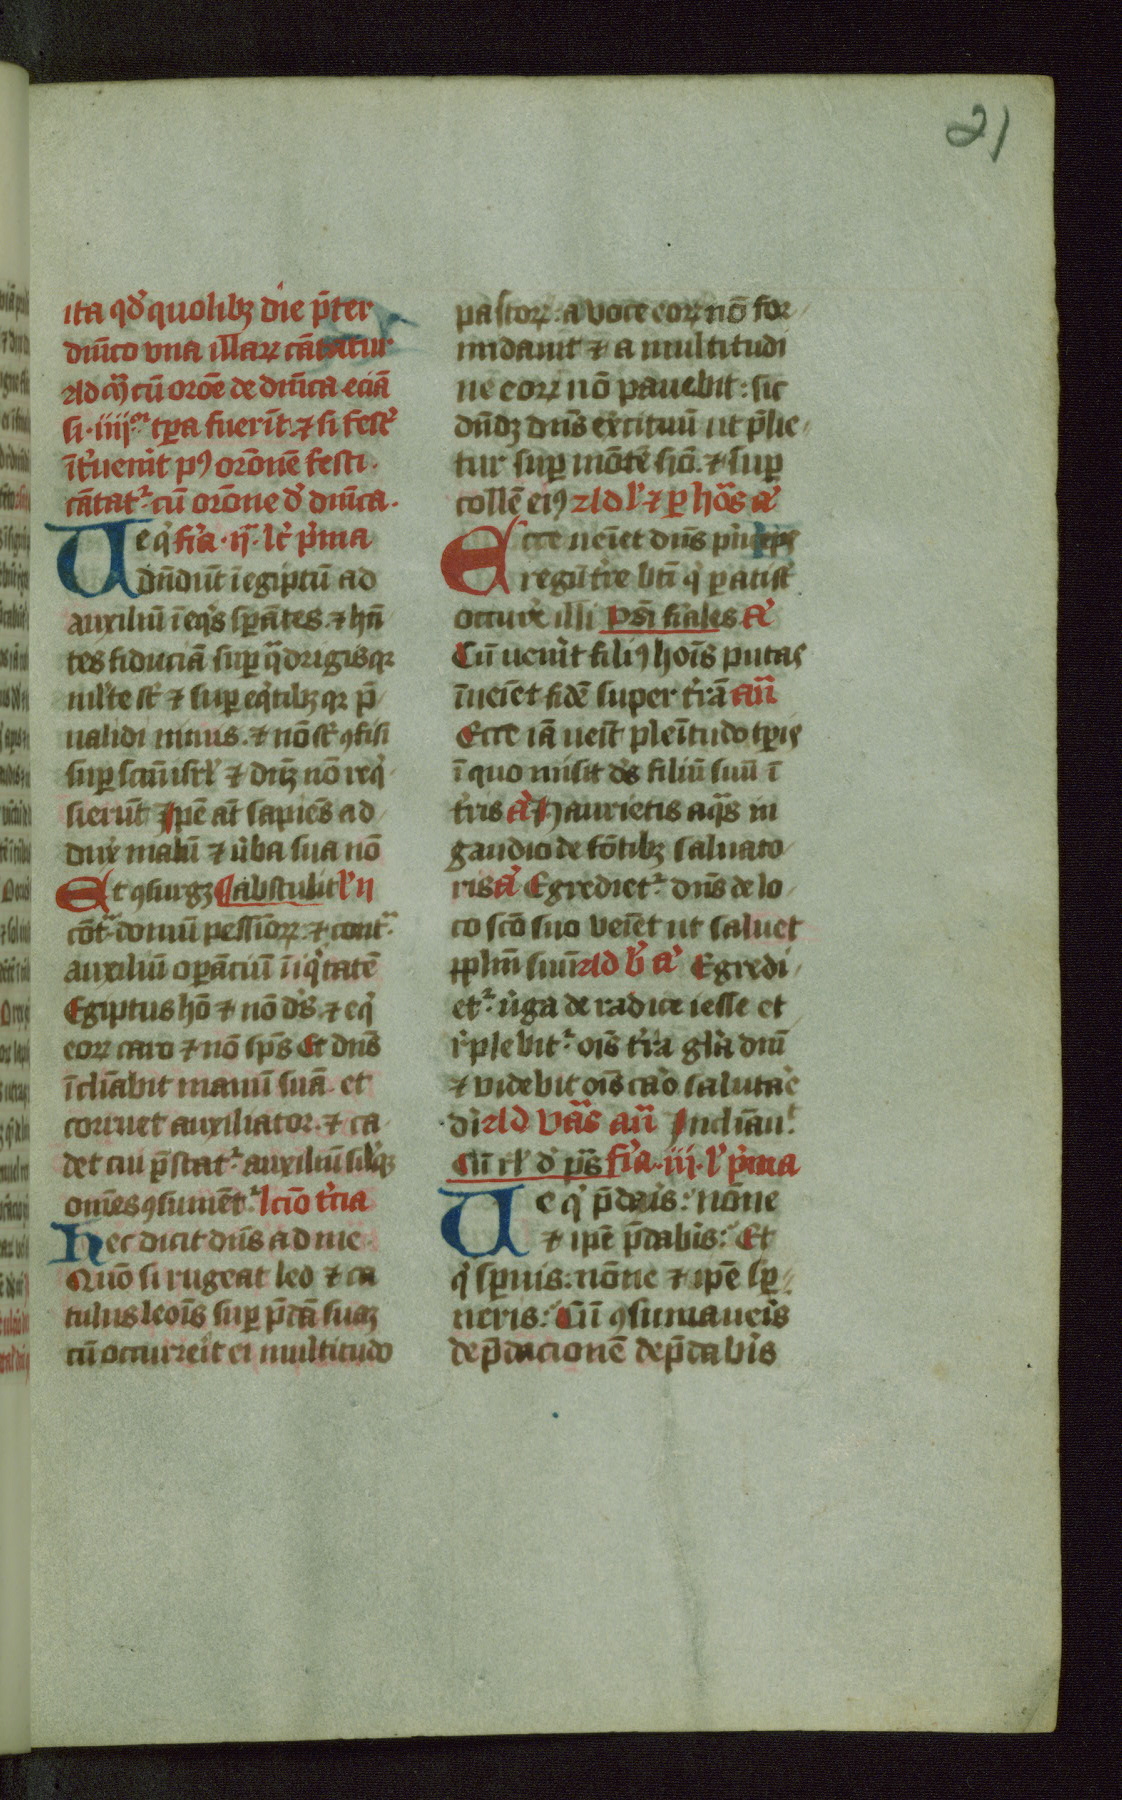 21
ita qd' quolibꝫ die p̄ter
dn̄ico vna illaꝝ cātatur
cū oroē de dn̄ica eciā
si · iiij°ʳ tꝑa fuerīt ⁊ si fest'
īt'uenit pꝰ orōnē festi ·
cātat᷑ cū orōne d' dn̄ica ·
Ue q' fi'a · ij · lc' p'ma
dn̄diūt ī egiptū ad
auxiliū ī eq's sꝑātes ⁊ hn̄
tes fiduciā suꝑ q̈drigis qꝛ
ml'te st' ⁊ suꝑ eq'tibꝫ qꝛ p̄
ualidi nimis · ⁊ nō st' ꝯfisi
suꝑ scm̄ isrl' ⁊ dn̄ꝫ nō req'
sierūt Ip̄e at̄ sapiēs ad
dux malū ⁊ u'ba sua nō
Et ꝯsurgꝫ abstulit l' ii
cōt̾ domū pessioꝝ · ⁊ cont̾
auxiliū oꝑāciū īiq'tatē
Egiptus hō ⁊ nō d's · ⁊ eq'
eoꝝ caro ⁊ nō sp̄s Et dn̄s
īcliābit manū suā et
corruet auxiliator · ⁊ ca
det cui p̄stat᷑ auxiliū sil'qꝫ
om̄es ꝯsument᷑ lcīo t'cia
hec dicit dn̄s ad me
Quō si rugeat leo ⁊ ca
tulus leoīs suꝑ p̄dā suaꝫ
cū occurreīt ei multitudo
pastoꝝ : a voce eoꝝ nō for
midauit ⁊ a multitudi
ne eoꝝ nō pauebit : sic
dn̄s exercituū ut p̄lie
tur suꝑ mōtē siō · ⁊ suꝑ
collē eiꝰ l' ⁊ ꝑ hōs a'
Ecce ueīet dn̄s p'nceps
regū t're bt̄i q' parati st'
occur'e illi ps̄i fiales A'
Cū uenīt filiꝰ hoīs putas
īueīet fidē super t'rā an̄
Ecce iā ueīt pleītudo tꝑis
ī quo misit d's filiū suū ī
t'ris A' Haurietis aq̈s in
gaudio de fōtibꝫ saluato
ris A' Egrediet᷑ dn̄s de lo
co scō suo veīet ut saluet
pplm̄ suū b' a' Egredi
et᷑ u'ga de radice iesse et
r'plebit᷑ oīs t'ra gl'a dn̄i
⁊ videbit oīs ca'o saluta'e
di an̄ Incliāuit
Cū rl' d' ps̄ fi'a · iij · l' p'ma
Ue q' p̄daris : nōne
⁊ ip̄e p̄dabis : Et
q' sꝑnis : nōne ⁊ ip̄e sꝑ
neris : Cū ꝯsumaueīs
dep̄dacionē dep̄dabis